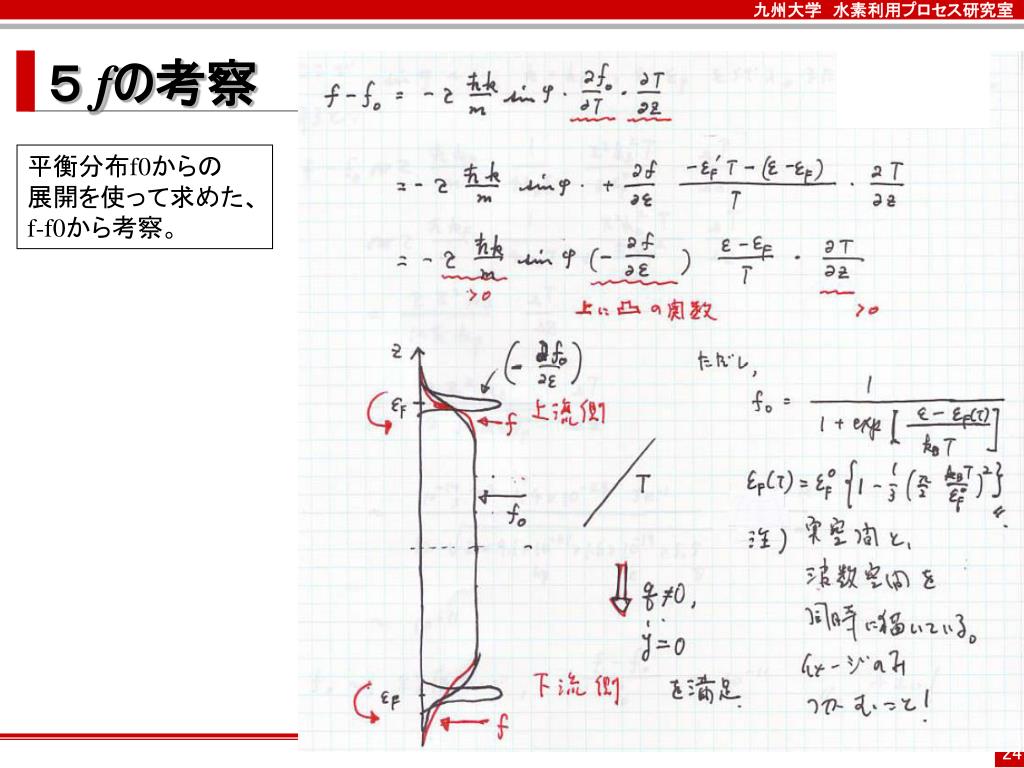 九州大学 水素利用プロセス研究室
５ fの考察
平衡分布f0からの
展開を使って求めた、
f-f0から考察。
f-f₀ = -τ ħk/m sinφ・∂f₀/∂T・∂T/∂z
= -τ ħk/m sinφ・+ ∂f/∂ε (-ε_F'T-(ε-ε_F))/T ・ ∂T/∂z
= -τ ħk/m sinφ (-∂f/∂ε) (ε-ε_F)/T ・ ∂T/∂z
>0
上に凸の関数
>0
z
(-∂f₀/∂ε)
ε_F
f
上流側
f₀
T
ただし,
f₀ = 1/(1+exp[(ε-ε_F(T))/(k_B T)])
ε_F(T) = ε_F⁰{1-1/3(π/2 k_B T/ε_F⁰)²}
注) 実空間と、
波数空間を
同時に描いている。
イメージのみ
つかむこと!
q≠0,
j=0
を満足.
ε_F
下流側
f
24